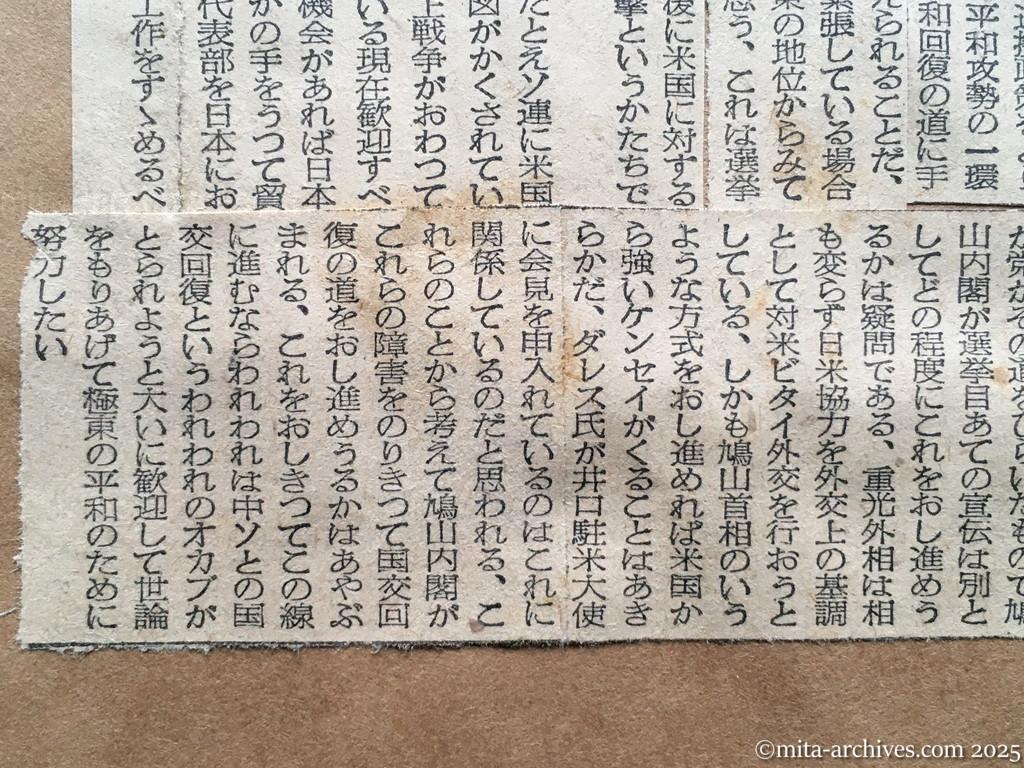 平和攻勢の一環
和回復の道に手
えられることだ、
緊張している場合
東の地位からみて
思う、これは選挙
後に米国に対する
撃というかたちで
たとえソ連に米国
図がかくされてい
上戦争がおわつて
いる現在歓迎すべ
機会があれば日本
かの手をうつて貿
代表部を日本にお
工作をすゝめるべ
が党がその道をひらいたもので鳩
山内閣が選挙目あての宣伝は別と
してどの程度にこれをおし進めう
るかは疑問である、重光外相は相
も変らず日米協力を外交上の基調
として対米ビタイ外交を行おうと
している、しかも鳩山首相のいう
ような方式をおし進めれば米国か
ら強いケンセイがくることはあき
らかだ、ダレス氏が井口駐米大使
に会見を申入れているのはこれに
関係しているのだと思われる、こ
れらのことから考えて鳩山内閣が
これらの障害をのりきつて国交回
復の道をおし進めうるかはあやぶ
まれる、これをおしきつてこの線
に進むならわれわれは中ソとの国
交回復というわれわれのオカブが
とられようと大いに歓迎して世論
をもりあげて極東の平和のために
努力したい
©mita-archives.com 2025